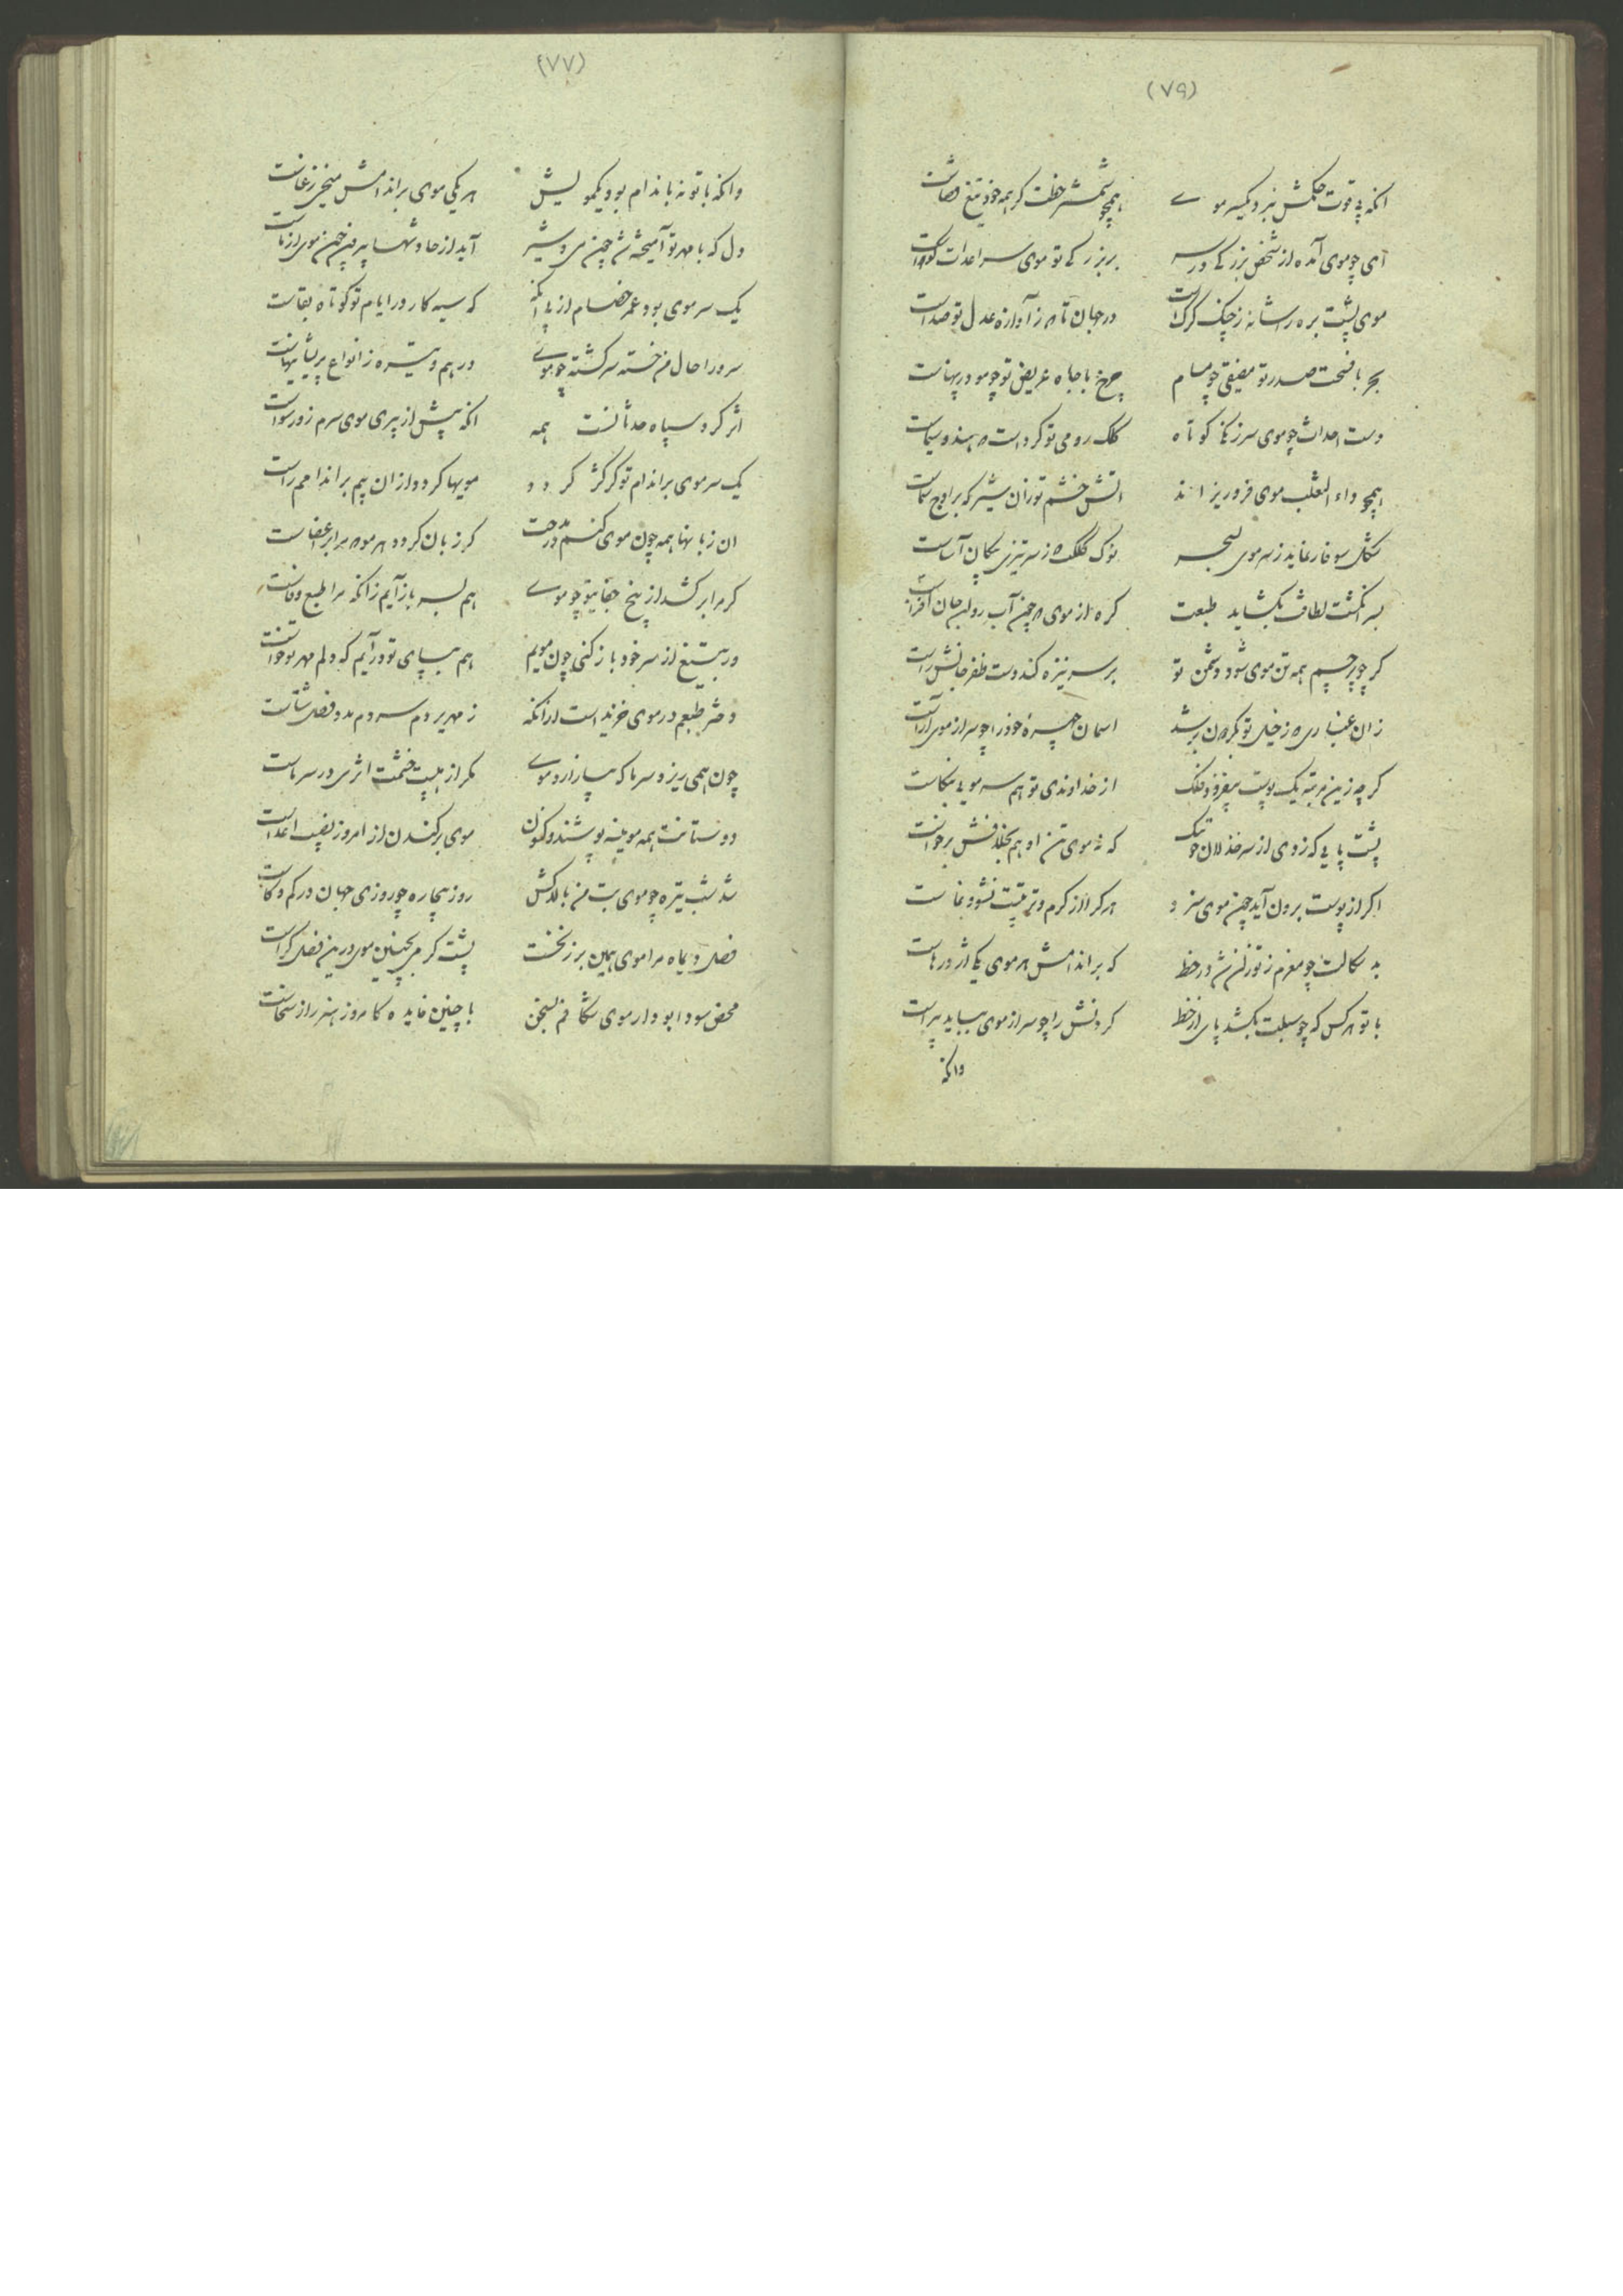 (۷۹)
انکه بی قوت حکمش نبرد یکسر موی همچو شمشیر خطت کرهمه خود تیغ قضاست
ای چو موی آمده از شخص بزرکی در سر بزرکی تو موی سر اعدات کواست
موی پشت بره را شانه ز چنک کرک است در جهان تا ز آوازه عدل تو صداست
بحر با فسحت صدر تو مضیقی چو مسام چرخ با جاه عریض تو چو مو در پهناست
دست احداث چو موی سر زنکی کوتاه کلک رومی تو کرد است هندو سیماست
همچو داء الثعلب موی فرو ریزاند اتش خشم تو زان شیر که بر اوج سماست
شکل سوفار نماید ز سر موی بسحر نوک کلکت که ز سر تیزی پیکان آساست
بسر انکشت لطافت بکشاید طبعت کره از موی چون آب روان جان افزاست
کر چو پرچم همه تن موی شود دشمن تو بر سر نیزه کند دست ظفر جانش راست
زان غباری که ز خیل تو بکردون برشد اسمان چهره خود را چو سر از موی اراست
کرچه زین مرتبه یک پوست بیفزود فلک از خداوندی تو هم سر مویی بنکاست
پشت پایی که زدی از سر خذلان که نه موی تن او هم بخلافش برخاست
اکر از پوست برون آید چون موی سزد هر کرا از کرم و تربیتت نشو و نماست
بد سکالت چو مغزم ز تو در خط که بر اندامش هر موی یکی اژدرهاست
با تو هر کس که چو سبلت بکشد پای از خط کردنش را چو سر از موی بباید پیراست
وانکه
(۷۷)
وانکه با تو نه باندام بود یکموییش هر یکی موی بر اندامش میخی ز عناست
دل که با مهر تو آمیخته شد چون می و شیر آید از حادثها بیرون چون موی از ماست
یک سر موی بود عمر خصام از پی انکه که سیه کار در ایام تو کوتاه بقاست
سرورا حال من خسته سرکشته چو موی درهم و تیره ز انواع پریشانیهاست
اثر کرد سپاه حدثانست همه انکه پیش از پیری موی سرم زو رسواست
یک سر موی بر اندام تو کر کژ کردد مویها کردد از ان بیم بر اندامم راست
ان زبانها همه چون موی کنم در مدحت کر زبان کردد هر مو که مرا بر اعضاست
کرم ابر کشد از بیخ جفای تو چو موی هم بسر باز آیم زانکه مرا طبع وفاست
ور بتیغ از سر خود باز کنی چون مویم هم بپای تو در آیم که دلم مهر تو خواست
دختر طبعم در موی خزیدست ازانکه زمهریر دم سردم مدد فصل شتاست
چون همی ریزد سرما که بیازارد موی مکر از هیبت خشمت اثری در سرماست
دوستانت همه مویینه بپوشند و کنون موی برکندن از امروز نصیب اعداست
شد شب تیره چو موی بت من بالاکش روز بیچاره چو روزی جهان در کم و کاست
فصل دیماه مرا موی همین بر زنخست پشت کرمی بچنین موی درین فصل کراست
محض سودا بود ار موی شکافم بسخن با چنین فایده کامروز هنر را ز سخاست